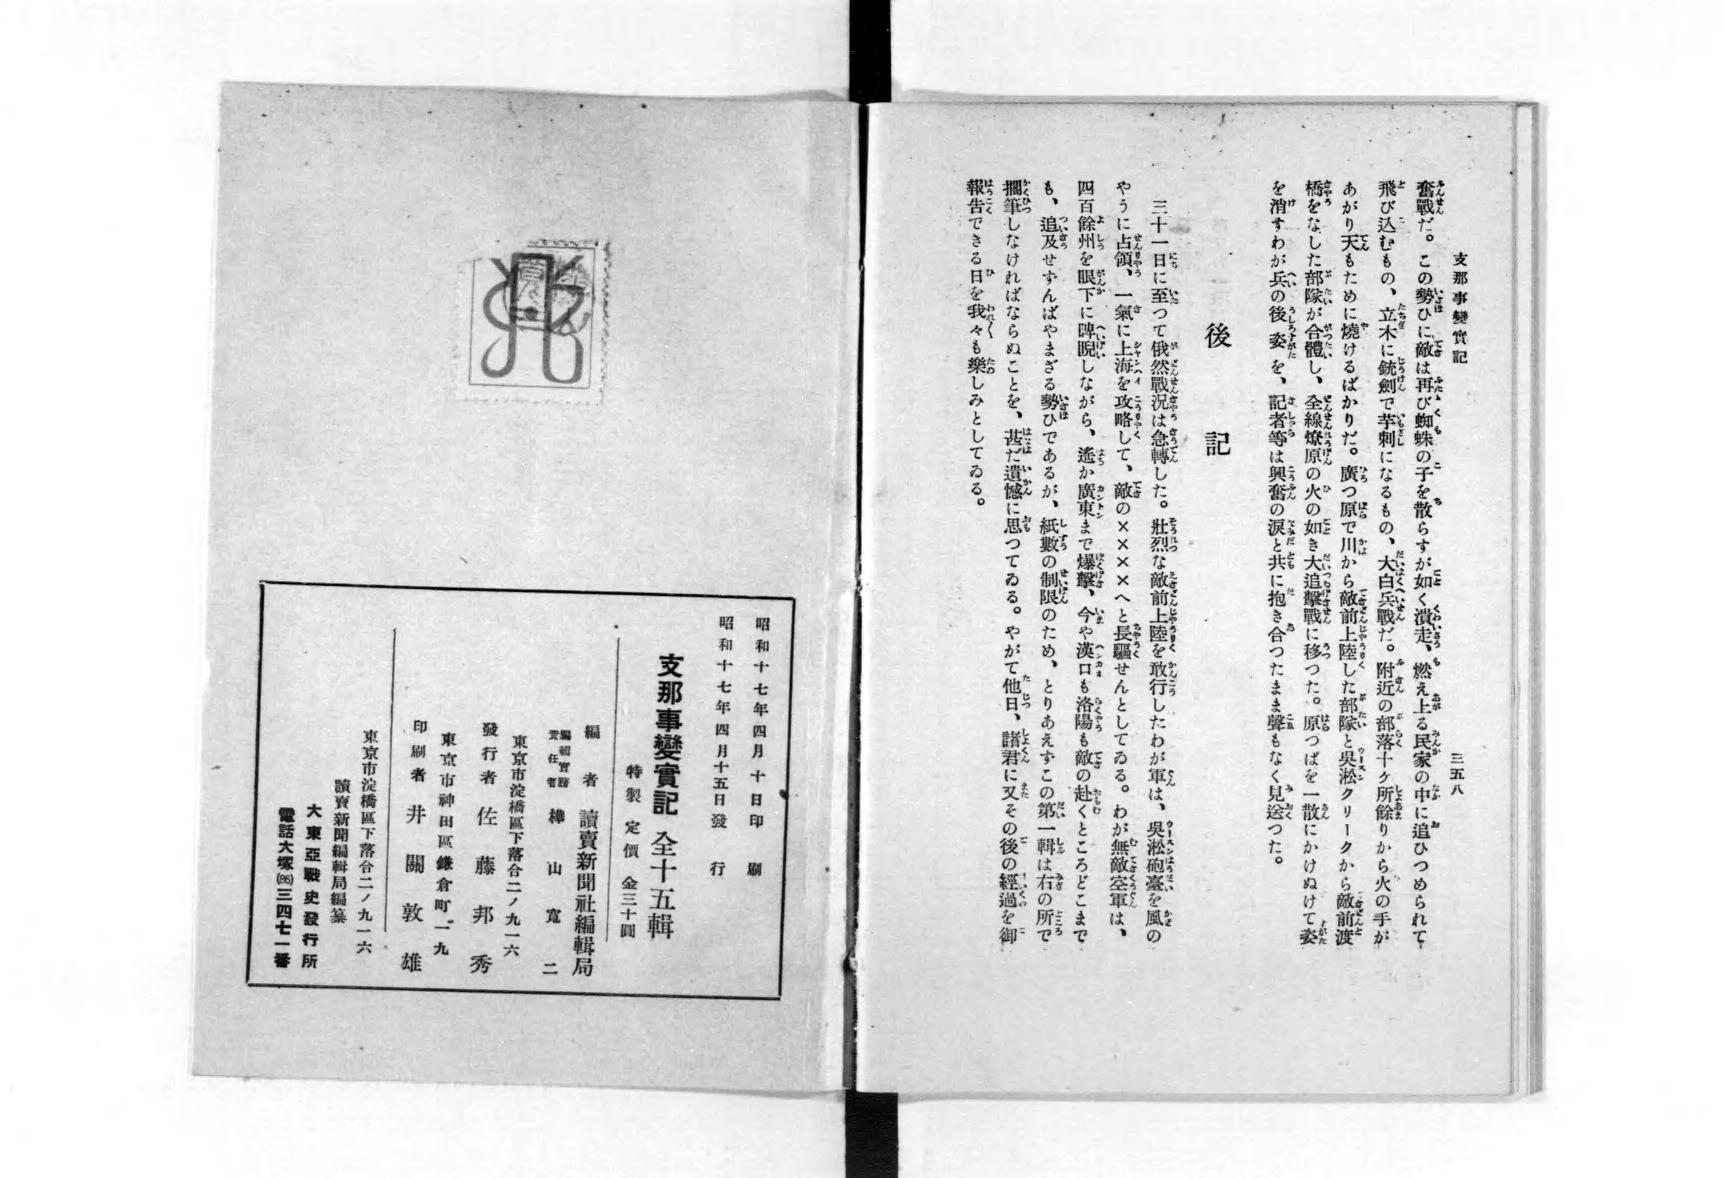 支那事變實記
三五八
奮戰だ。この勢ひに敵は再び蜘蛛の子を散らすが如く潰走、燃え上る民家の中に追ひつめられて
飛び込むもの、立木に銃劍で芋刺になるもの、大白兵戰だ。附近の部落十ケ所餘りから火の手が
あがり天もために燒けるばかりだ。廣つ原で川から敵前上陸した部隊と吳淞クリークから敵前渡
橋をなした部隊が合體し、全線燎原の火の如き大追擊戰に移つた。原つぱを一散にかけぬけて姿
を消すわが兵の後姿を、記者等は興奮の淚と共に抱き合つたまま聲もなく見送つた。
後記
三十一日に至つて俄然戰況は急轉した。壯烈な敵前上陸を敢行したわが軍は、吳淞砲臺を風の
やうに占領、一氣に上海を攻略して、敵の××××へと長驅せんとしてゐる。わが無敵空軍は、
四百餘州を眼下に睥睨しながら、遙か廣東まで爆擊、今や漢口も洛陽も敵の赴くところどこまで
も、追及せずんばやまざる勢ひであるが、紙數の制限のため、とりあえずこの第一輯は右の所で
擱筆しなければならぬことを、甚だ遺憾に思つてゐる。やがて他日、諸君に又その後の經過を御
報吿できる日を我々も樂しみとしてゐる。
昭和十七年四月十日印刷
昭和十七年四月十五日發行
支那事變實記 全十五輯
特製 定價 金三十圓
編者 讀賣新聞社編輯局
編輯實務責任者 樺山寬二
東京市淀橋區下落合二ノ九一六
發行者 佐藤邦秀
東京市神田區鎌倉町一九
印刷者 井關敦雄
東京市淀橋區下落合二ノ九一六
讀賣新聞編輯局編纂
大東亞戰史發行所
電話大塚(86)三四七一番